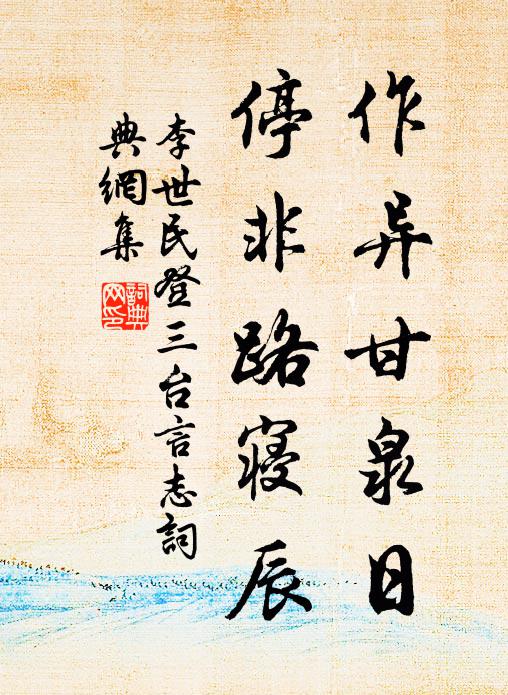 作异甘泉日
停非路寝辰
李世民登三台言志詞
典網集
詞典网印